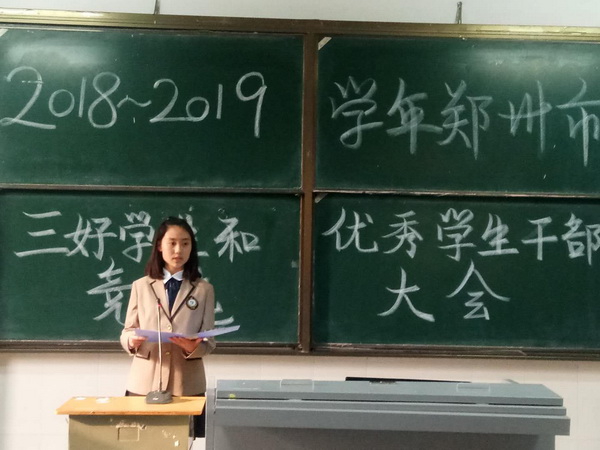 2018~2019学年郑州市
三好学生和优秀学生干部
竞选大会